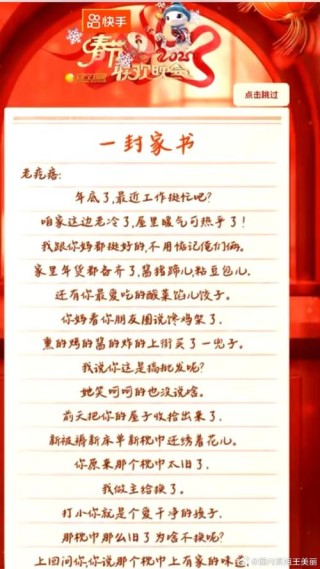 快手
春节
联欢晚会
2025
点击跳过
一封家书
老疙瘩：
年底了，最近工作挺忙吧？
咱家这边老冷了，屋里暖气可热乎了！
我跟你妈都挺好的，不用惦记俺们俩。
家里年货都备齐了，酱猪蹄儿，粘豆包儿，
还有你最爱吃的酸菜馅儿饺子。
你妈看你朋友圈说馋鸡架了，
熏的烤的酱的炸的上街买了一兜子。
我说你这是搞批发呢？
她笑呵呵的也没说啥。
前天把你的屋子收拾出来了，
新被褥新床单新枕巾还绣着花儿。
你原来那个枕巾太旧了，
我做主给换了。
打小你就是个爱干净的孩子，
那枕巾那么旧了为啥不换呢？
上回问你，你说那个枕巾上有家的味道
王美丽